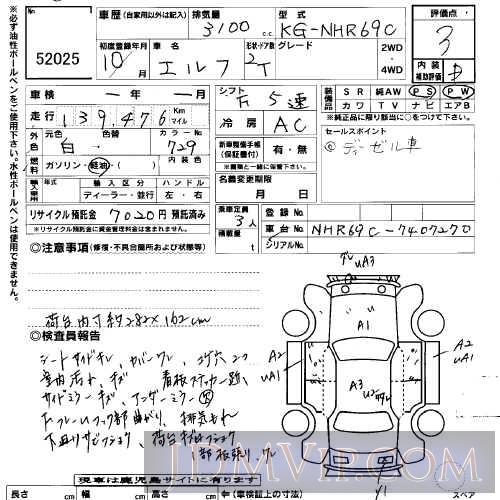 ※必ず油性ボールペンをご使用下さい。水性ボールペンは使用できません。
52025
車歴 (自家用以外は記入)
排気量 3100 c.c.
型式 KG-NHR69C
評価点 3
初度登録年月 10/
車名 エルフ
形状・ドア数 2 T
グレード
2WD
4WD
内装補助評価 D
車検 ー年ー月
走行 139,476 Km マイル
シフト F 5速
装備品 SR 純AW PS PW
カワ TV ナビ エアB
※純正品に限り該当に○をつけて下さい。
外装 元色 白・ カラーNo. 729
冷房 AC
セールスポイント
◎ ディーゼル車
燃料 ガソリン・軽油・( ) 内装色
新車整備手帳(保証書付) 有・無
※記録簿と一緒に保管して下さい。
輸入車 年式 輸入区分 ディーラー・並行 ハンドル 左・右
名義変更期限 月 日
リサイクル預託金 7020円 預託済み
※リサイクル預託金に資金管理料金は含まれません。
乗車定員 3人
積載量 t
登録No.
車台No. NHR69C-7407270
シリアルNo.
◎注意事項 (修復・不具合箇所および状態等)
荷台内寸約282×162cm
◎検査員報告
シートサイドキレ カバーワレ
室内汚れ キズ 看板ステッカー跡
サイドミラーキズ アンダーミラー
曲がり 排気もれ
下廻りサビ
uA3
A1
A2
uA1
A3
A2
uA1
現車は鹿児島サイトに有ります
長さ cm 幅 cm 高さ cm (車検証上の寸法)
スペア
JPDMVIP.COM